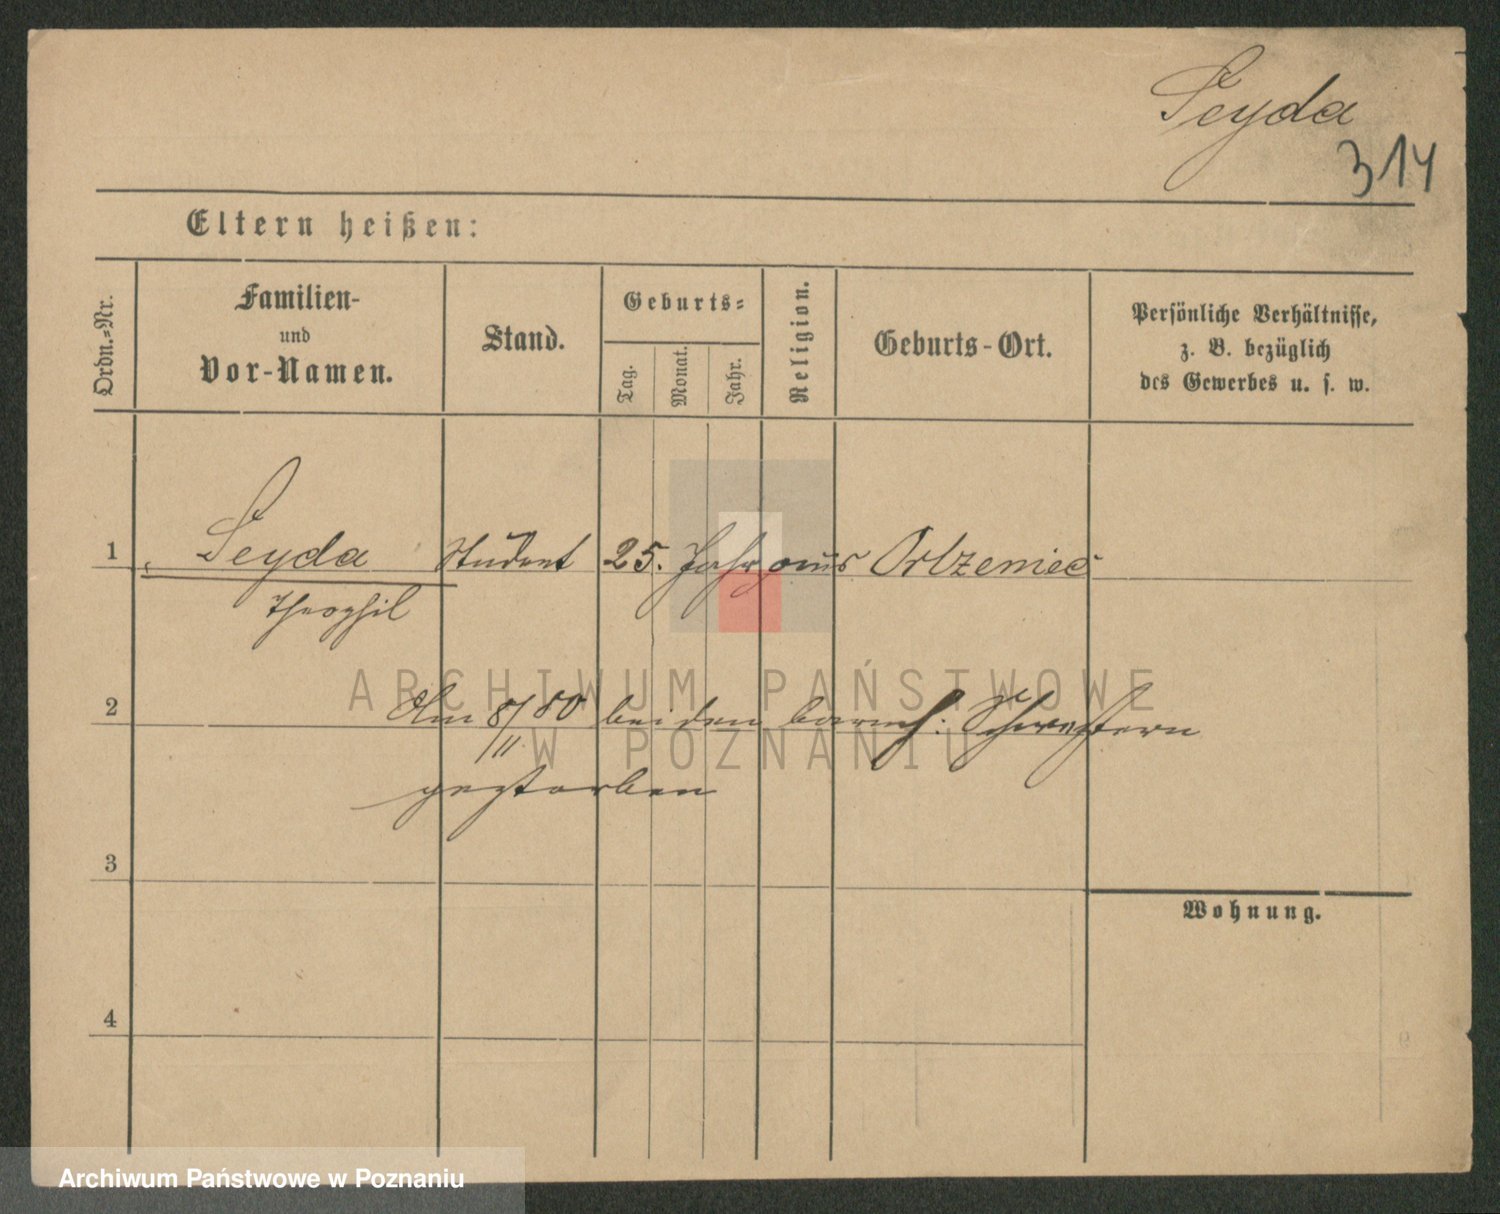 Seyda
314
Eltern heißen:
Ordn.-Nr.
Familien-
und
Vor-Namen.
Stand.
Geburts-
Tag.
Monat.
Jahr.
Religion.
Geburts-Ort.
Persönliche Verhältnisse,
z. B. bezüglich
des Gewerbes u. s. w.
1 Seyda Student 25. Jahr aus
Theophil
2 Am 8/11 80 bei den barmh: Schwestern
gestorben
3
Wohnung.
4
ARCHIWUM PAŃSTWOWE
W POZNANIU
Archiwum Państwowe w Poznaniu